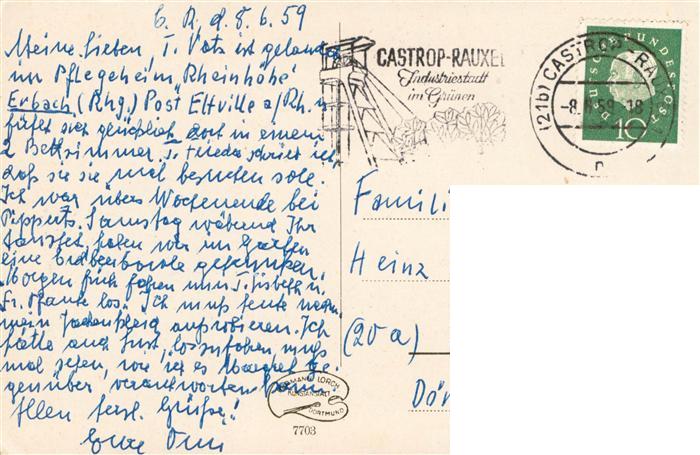 C. R. d. 8.6.59
Meine Lieben T. Vots ist gelandet
im Pflegeheim "Rheinhöhe"
Erbach (Rhg.) Post Eltville a/Rh. u.
fühlt sich glücklich dort in einem
2 Bettzimmer. T. Frieda schrieb ich,
daß sie sie mal besuchen solle.
Ich war übers Wochenende bei
Pipperts. Samstag während Ihr
tanztet, haben wir im Garten
eine Erdbeerbowle getrunken.
Morgen früh fahren nun T. Lisbeth u.
Fr. los. Ich muß heute noch
mein Jackenkleid anprobieren. Ich
hätte auch Lust, loszufahren, muß
mal sehen, wie ich es Margret ge-
genüber verantworten kann.
Allen herzl. Grüße!
Eure
CASTROP-RAUXEL
Industriestadt
im Grünen
(21b) CASTROP-RA
-8.6.59-18
n
DEUTSCHE BUNDESPOST
10
Famili
Heinz
(20a)
Dör
HERMANN LORCH
KUNSTANSTALT
DORTMUND
7703